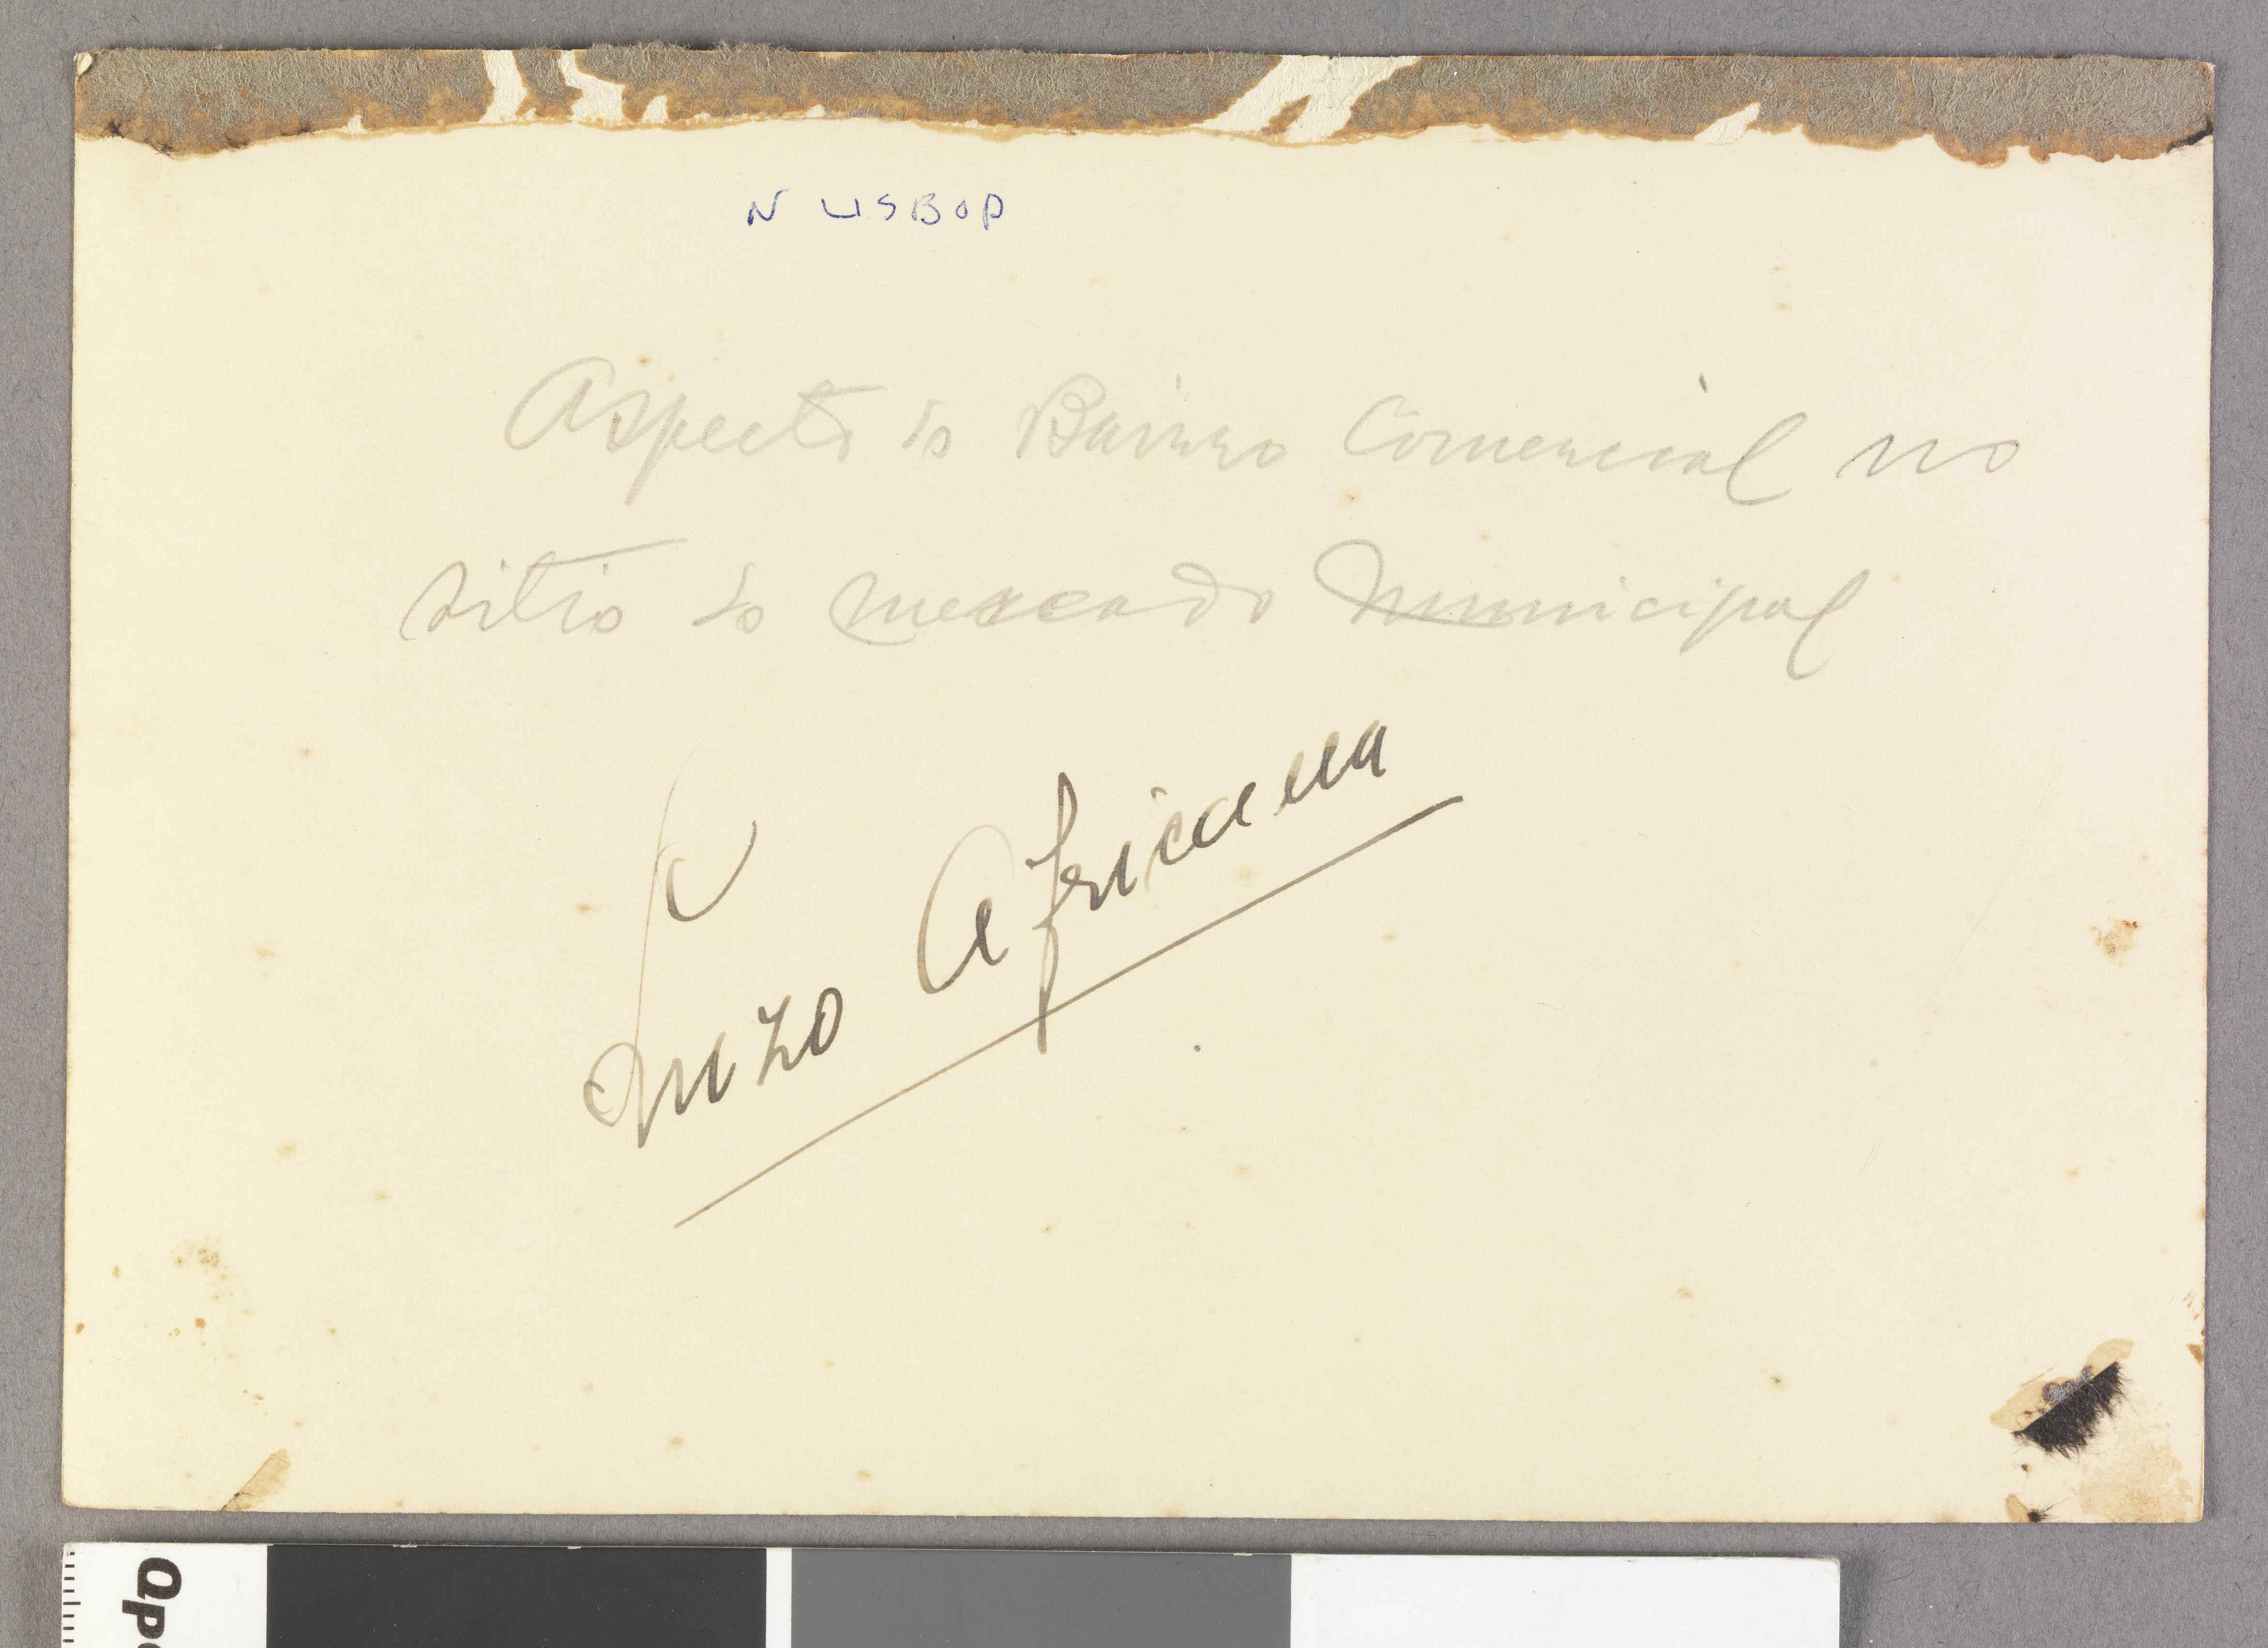 N LISBOA
Aspecto do Bairro Comercial no
sitio do mercado Municipal
Luzo Africana